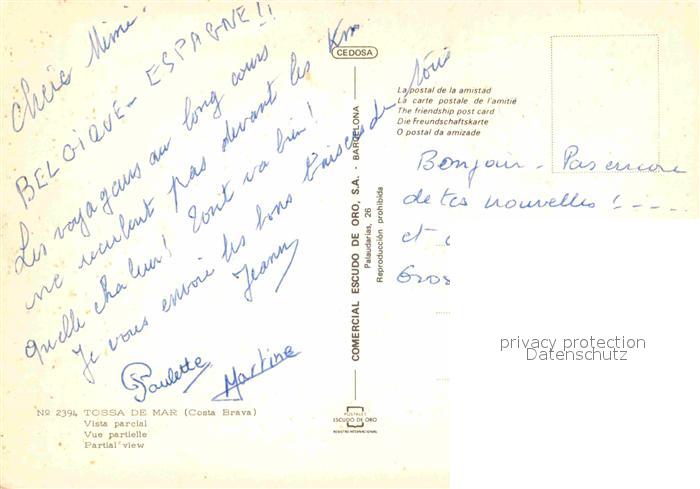 Chère Mimi.
BELGIQUE - ESPAGNE!!
Les voyageurs au long cours
ne reculent pas devant les Km
quelle chaleur! Tout va bien!
Je vous envoie les bons baisers de
Jeanny
Paulette Martine
Nº 2394 TOSSA DE MAR (Costa Brava)
Vista parcial
Vue partielle
Partial view
CEDOSA
COMERCIAL ESCUDO DE ORO, S.A. - BARCELONA
Palaudarias, 26
Reproducción prohibida
POSTALES
ESCUDO DE ORO
REGISTRO INTERNACIONAL
La postal de la amistad
La carte postale de l'amitié
The friendship post card
Die Freundschaftskarte
O postal da amizade
Bonjour - Pas encore
de tes nouvelles! - - - -
et
Gros
privacy protection
Datenschutz